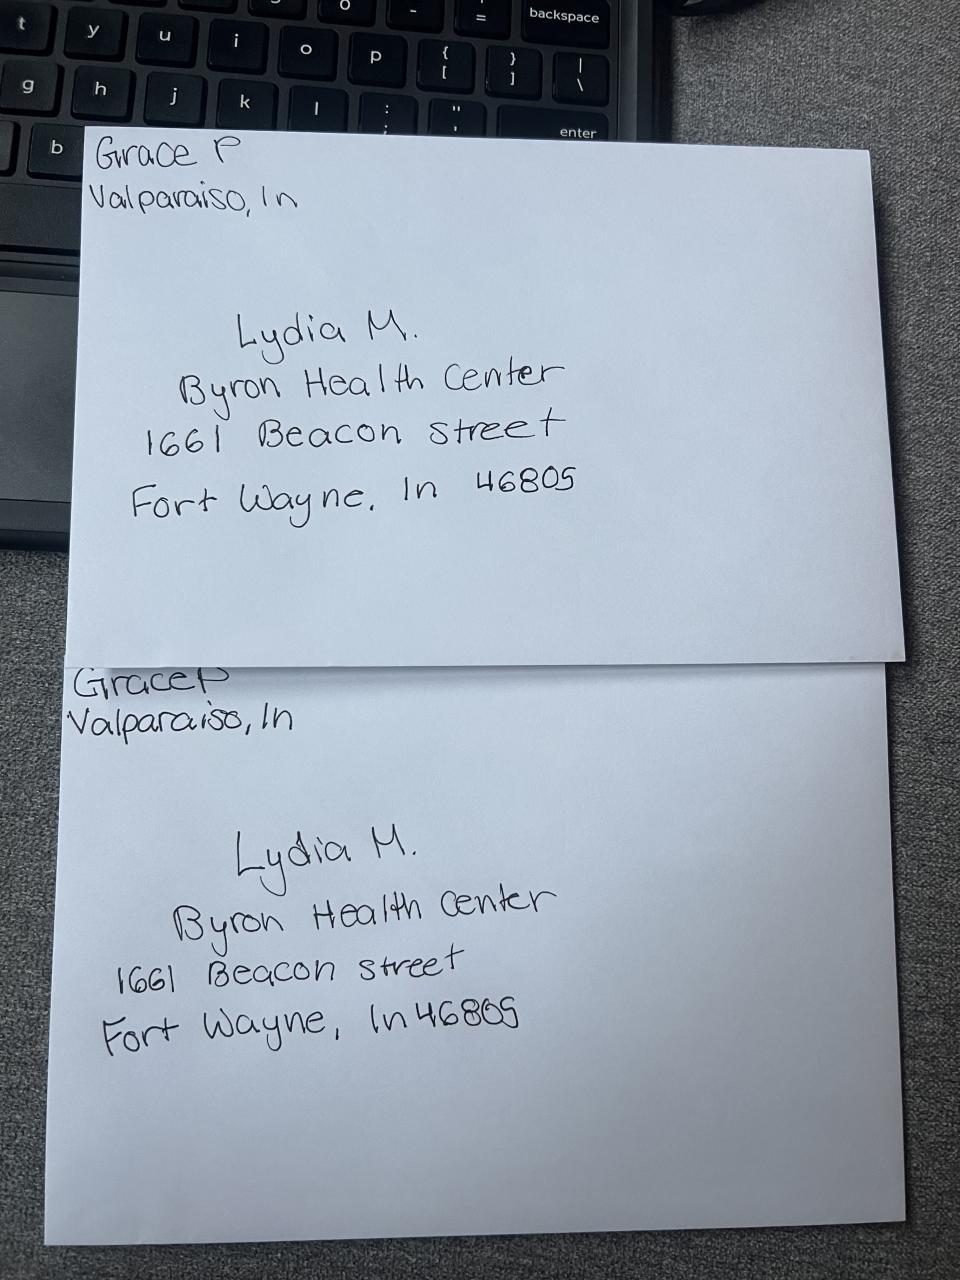 o
-
=
backspace
t
y
u
i
o
p
{
[
}
]
|
\
g
h
j
k
l
:
;
"
'
enter
b
Grace P
Valparaiso, In
Lydia M.
Byron Health Center
1661 Beacon street
Fort Wayne. In 46805
Grace P
Valparaiso, In
Lydia M.
Byron Health Center
1661 Beacon street
Fort Wayne, In 46805